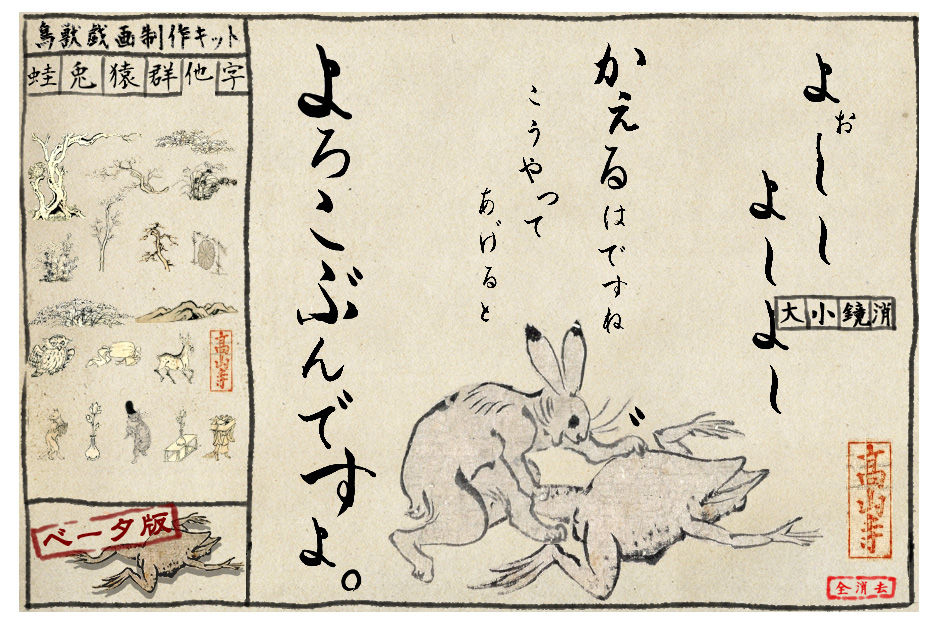 鳥獣戯画制作キット
蛙 兎 猿 群 他 字
高山寺
ベータ版
よぉしし
よしよし
かえるはですね
こうやって
あげると
よろこぶんですよ。
大 小 鏡 消
高山寺
全消去